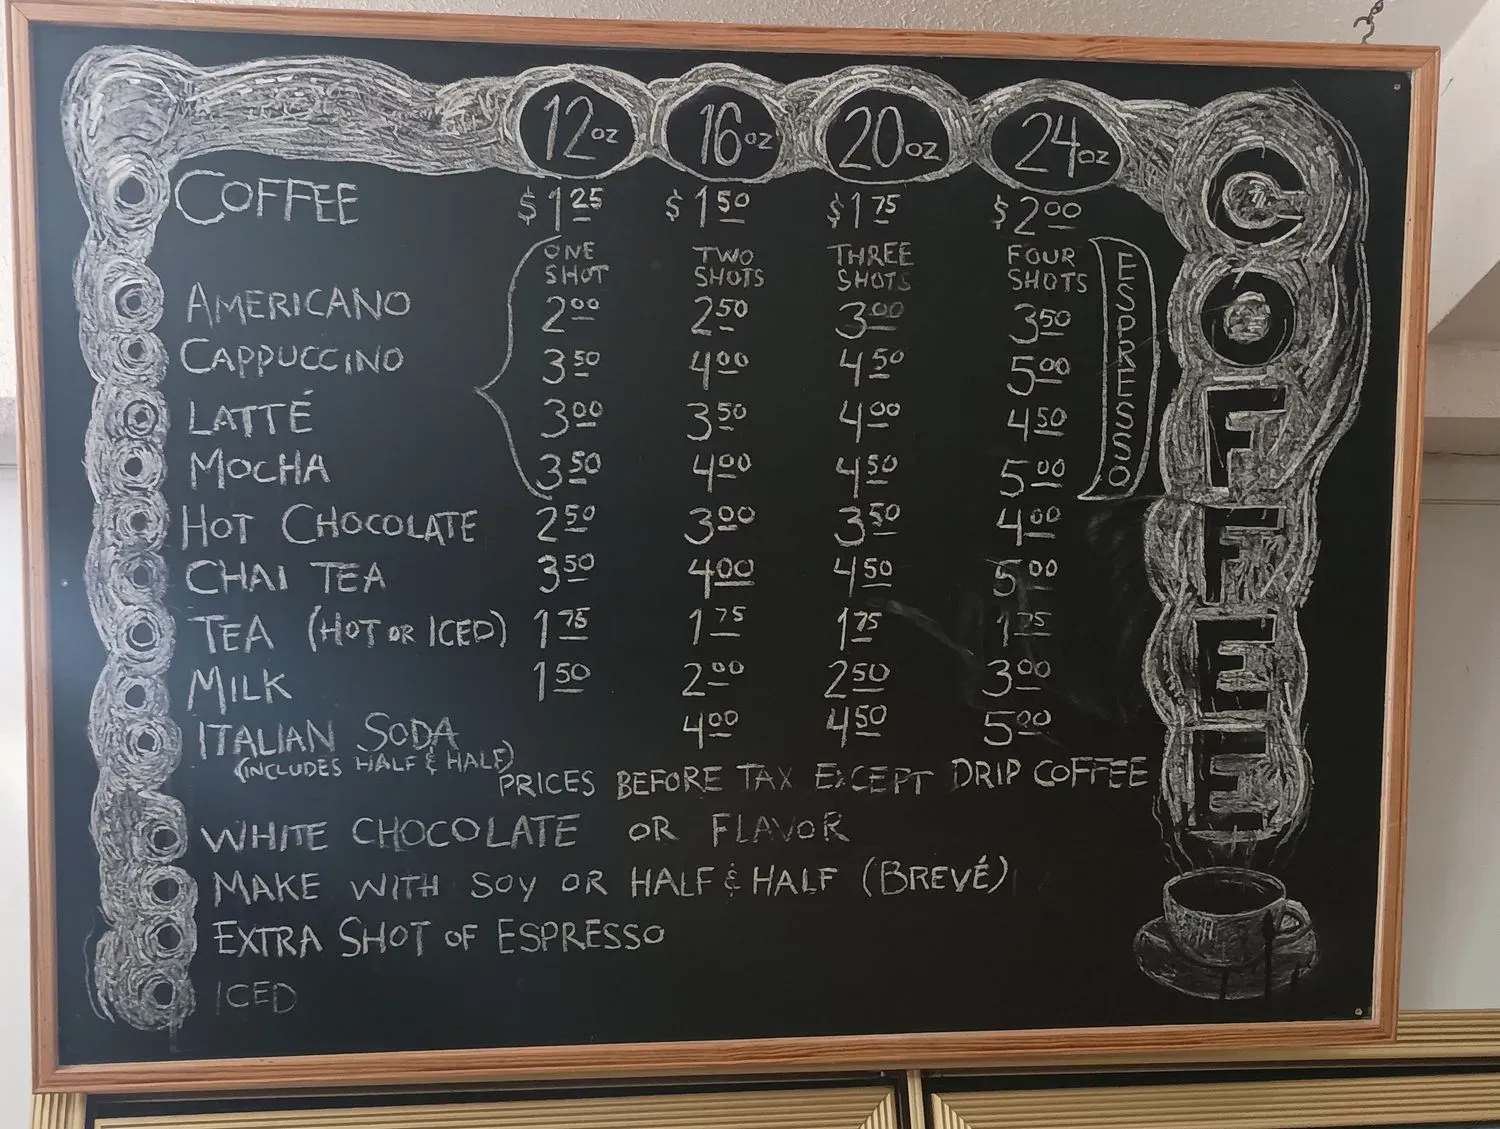 12oz 16oz 20oz 24oz
COFFEE $1.25 $1.50 $1.75 $2.00
ONE SHOT TWO SHOTS THREE SHOTS FOUR SHOTS
AMERICANO 2.00 2.50 3.00 3.50
CAPPUCCINO 3.50 4.00 4.50 5.00
LATTÉ 3.00 3.50 4.00 4.50
MOCHA 3.50 4.00 4.50 5.00
ESPRESSO
HOT CHOCOLATE 2.50 3.00 3.50 4.00
CHAI TEA 3.50 4.00 4.50 5.00
TEA (HOT OR ICED) 1.75 1.75 1.75 1.75
MILK 1.50 2.00 2.50 3.00
ITALIAN SODA 4.00 4.50 5.00
(INCLUDES HALF & HALF)
PRICES BEFORE TAX EXCEPT DRIP COFFEE
WHITE CHOCOLATE OR FLAVOR
MAKE WITH SOY OR HALF & HALF (BREVÉ)
EXTRA SHOT OF ESPRESSO
ICED
COFFEE